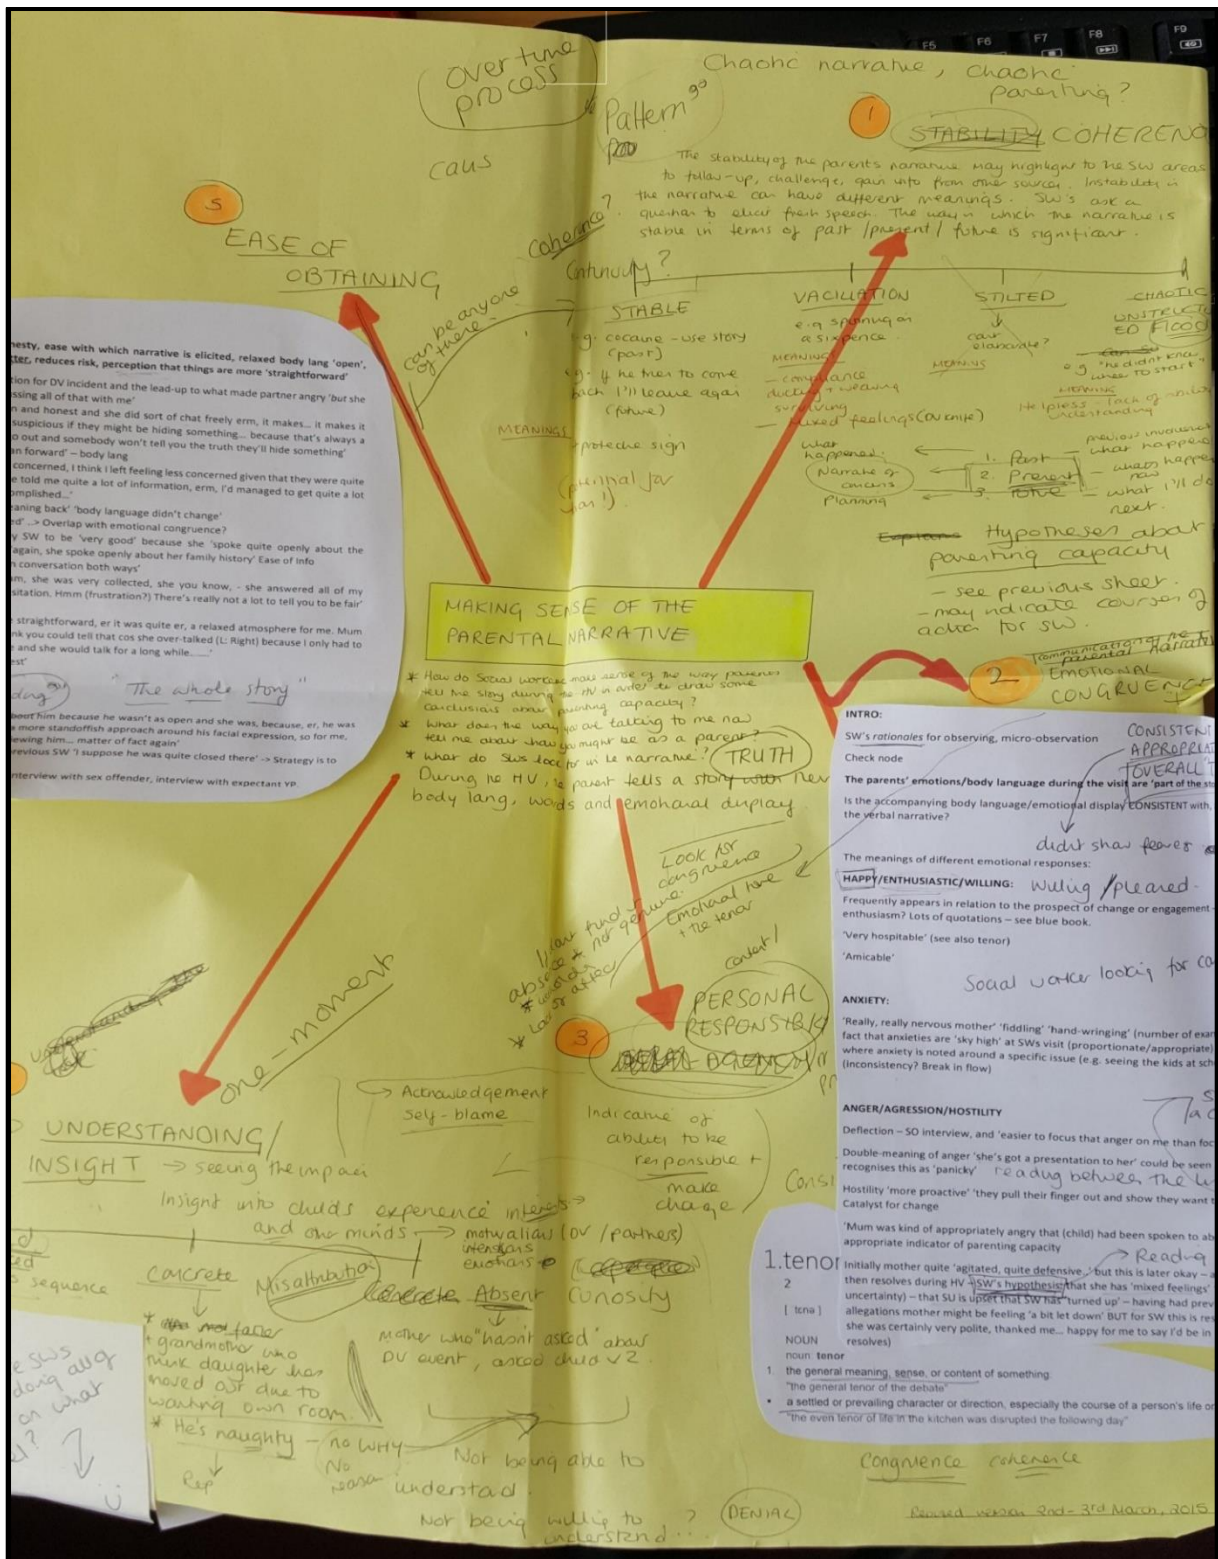 F5 F6 F7 F8 F9
over time
process
Pattern
Chaotic narrative, chaotic
parenting?
1
STABILITY COHERENC
The stability of the parents narrative may highlight to the SW areas
to follow-up, challenge, gain info from other sources. Instability in
the narrative can have different meanings. SW's ask a
question to elicit fresh speech. The way in which the narrative is
stable in terms of past/present/future is significant.
caus
5
EASE OF
OBTAINING
Coherence?
Continuity?
can be anyone
of these
STABLE
e.g. cocaine-use story
(past)
e.g. if he tries to come
back I'll leave again
(future)
MEANINGS
protective sign
(potential for
VACILLATION
e.g. spinning on
a sixpence.
MEANINGS
- compliance
ducking + weaving
surviving
- Mixed feelings
STILTED
can't
elaborate?
MEANING
CHAOTIC
UNSTRUCTUR
ED FLOOD
e.g. "he didn't know
where to start"
MEANING
Helpless - lack of ability
understanding
what
happened.
Narrative of
concerns
Planning
1. Past
2. Present
3. Future
previous involvement
what happened
- whats happen
now
- what I'll do
next.
Hypotheses about
parenting capacity
- see previous sheet.
- may indicate courses of
action for SW.
nesty, ease with which narrative is elicited, relaxed body lang 'open',
tter, reduces risk, perception that things are more 'straightforward'
tion for DV incident and the lead-up to what made partner angry 'but she
ssing all of that with me'
n and honest and she did sort of chat freely erm, it makes... it makes it
suspicious if they might be hiding something... because that's always a
o out and somebody won't tell you the truth they'll hide something'
an forward' – body lang
concerned, I think I left feeling less concerned given that they were quite
e told me quite a lot of information, erm, I'd managed to get quite a lot
omplished...'
aning back' 'body language didn't change'
ed' ..> Overlap with emotional congruence?
y SW to be 'very good' because she 'spoke quite openly about the
again, she spoke openly about her family history' Ease of Info
n conversation both ways'
am, she was very collected, she you know, - she answered all of my
sitation. Hmm (frustration?) There's really not a lot to tell you to be fair'
straightforward, er it was quite er, a relaxed atmosphere for me. Mum
nk you could tell that cos she over-talked (L: Right) because I only had to
and she would talk for a long while......'
est'
"The whole story"
bout him because he wasn't as open and she was, because, er, he was
more standoffish approach around his facial expression, so for me,
ewing him... matter of fact again'
revious SW 'I suppose he was quite closed there' -> Strategy is to
nterview with sex offender, interview with expectant YP.
MAKING SENSE OF THE
PARENTAL NARRATIVE
* How do Social workers make sense of the way parents
tell the story during the HV in order to draw some
conclusions about parenting capacity?
* What does the way you are talking to me now
tell me about how you might be as a parent?
* What do SWs look for in the narrative? TRUTH
During the HV, the parent tells a story with their
body lang, words and emotional display.
2
Communication of the
parental narrative
EMOTIONAL
CONGRUENC
INTRO:
SW's rationales for observing, micro-observation
CONSISTENT
APPROPRIAT
OVERALL T
Check node
The parents' emotions/body language during the visit are 'part of the sto
Is the accompanying body language/emotional display CONSISTENT with,
the verbal narrative?
didn't show
The meanings of different emotional responses:
HAPPY/ENTHUSIASTIC/WILLING: Willing/pleased.
Frequently appears in relation to the prospect of change or engagement
enthusiasm? Lots of quotations – see blue book.
'Very hospitable' (see also tenor)
'Amicable'
Social worker looking for co
ANXIETY:
'Really, really nervous mother' 'fiddling' 'hand-wringing' (number of exam
fact that anxieties are 'sky high' at SWs visit (proportionate/appropriate)
where anxiety is noted around a specific issue (e.g. seeing the kids at sch
(inconsistency? Break in flow)
ANGER/AGRESSION/HOSTILITY
Deflection – SO interview, and 'easier to focus that anger on me than foc
Double-meaning of anger 'she's got a presentation to her' could be seen
recognises this as 'panicky' reading between the li
Hostility 'more proactive' 'they pull their finger out and show they want t
Catalyst for change
'Mum was kind of appropriately angry that (child) had been spoken to ab
appropriate indicator of parenting capacity
Reading
Initially mother quite 'agitated, quite defensive..' but this is later okay – a
then resolves during HV – SW's hypothesis that she has 'mixed feelings'
uncertainty) – that SU is upset that SW has 'turned up' – having had prev
allegations mother might be feeling 'a bit let down' BUT for SW this is res
she was certainly very polite, thanked me... happy for me to say I'd be in
resolves)
Look for
congruence
Emotional tone
+ the tenor
content/
3
PERSONAL
RESPONSIBI
AGENCY
Acknowledgement
Self-blame
Indicative of
ability to be
responsible +
make
change
Consi
one-moment
UNDERSTANDING/
INSIGHT → seeing the impact
Insight into child's experience interests
and own minds → motivations (DV/partners)
intensions
emotions
CONCRETE
Misattribution
Concrete Absent Curiosity
sequence
father
+ grandmother who
think daughter has
moved out due to
wanting own room.
* He's naughty - no WHY
No
reason
Rep
Mother who "hasn't asked" about
DV event, asked child v2.
Not being able to
understand.
Not being willing to
understand...
?
DENIAL
e SWs
on what
1.tenor
2
[ tɛnə ]
NOUN
noun: tenor
1. the general meaning, sense, or content of something
"the general tenor of the debate"
• a settled or prevailing character or direction, especially the course of a person's life or
"the even tenor of life in the kitchen was disrupted the following day"
Congruence coherence
Revised version 2nd-3rd March, 2015